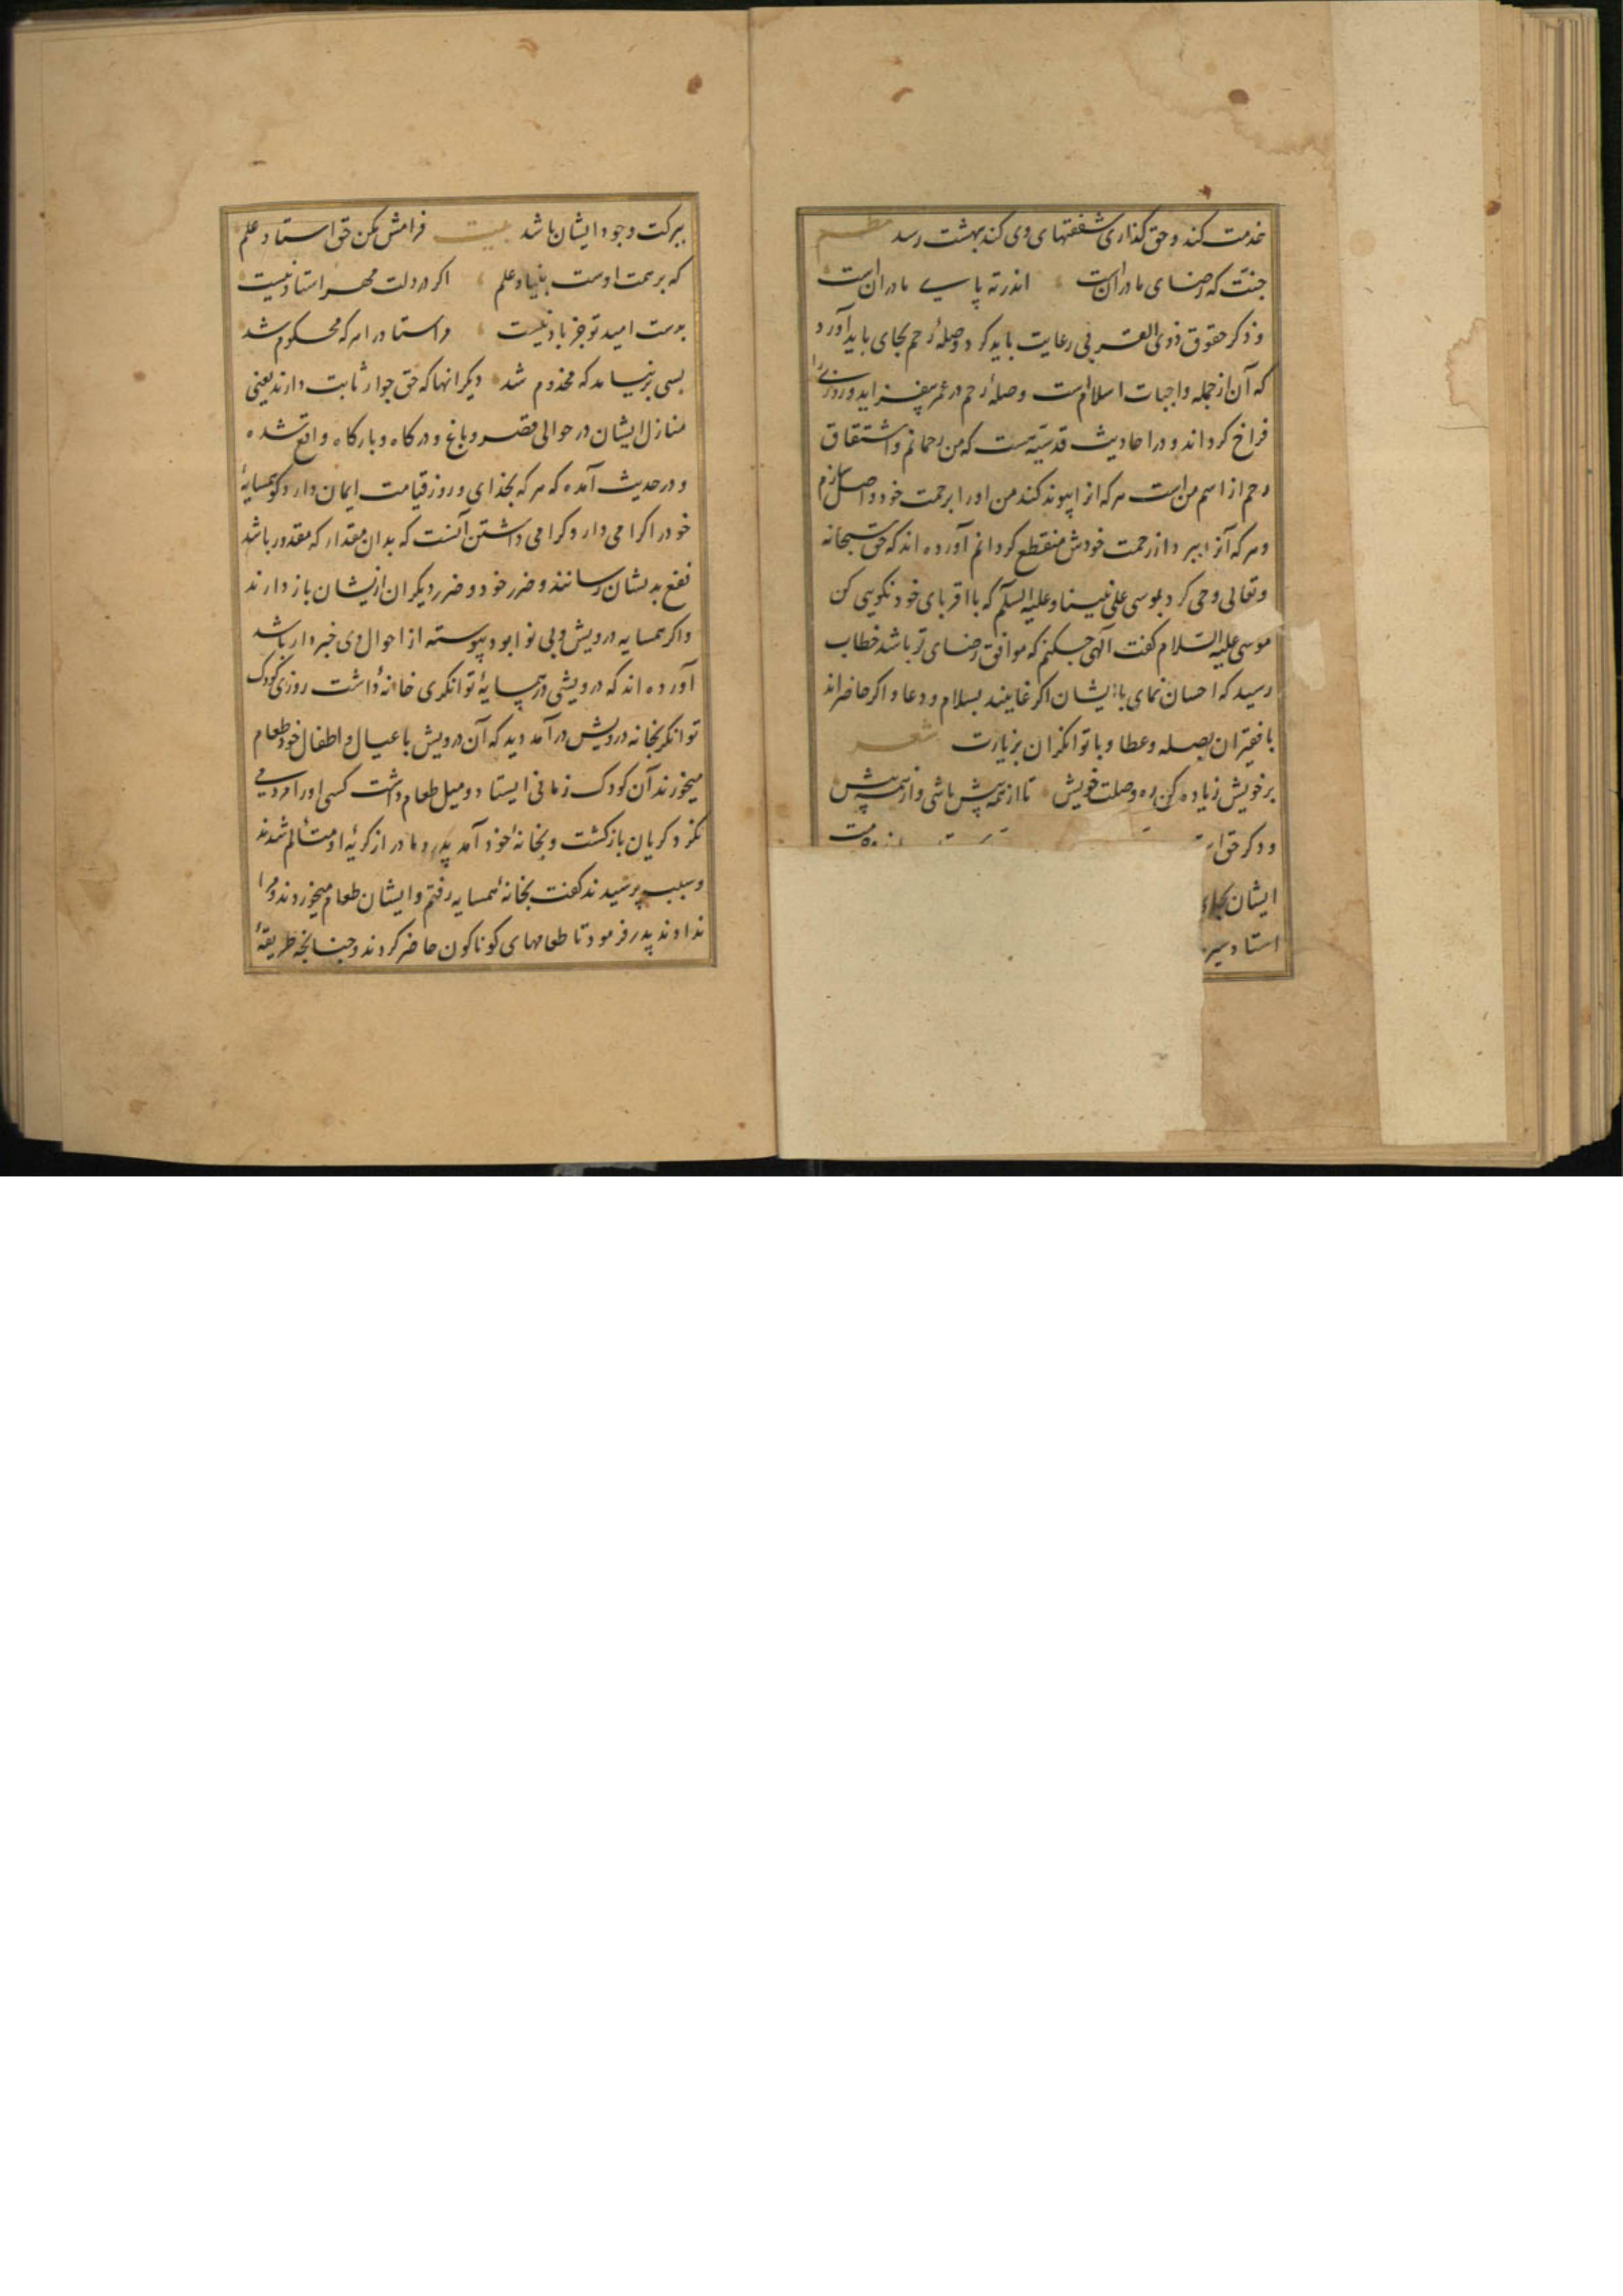 خدمت کند و حق کذاری شفقتهای وی کند ببهشت رسد نظم
جنت که رضای مادر آنست اندر ته پای مادرانست
و ذکر حقوق ذوی القربی رعایت باید کرد و صلهٔ رحم بجای باید آورد
که آن از جمله واجبات اسلام است و صلهٔ رحم در عمر بیفزاید و روزی را
فراخ کرداند و در احادیث قدسیه است که من رحمانم و اشتقاق
رحم از اسم من است هر که ازا پیوند کند من اورا برحمت خود واصل سازم
و هر که آنرا ببرد از رحمت خودش منقطع کردانم آورده اند که حق سبحانه
و تعالی وحی کرد بموسی علی نبینا و علیه السلم که با اقربای خود نکویی کن
موسی علیه السلام کفت الهی چکنم که موافق رضای تو باشد خطاب
رسید که احسان نمای با ایشان اکر غایبند بسلام و دعا و اکر حاضراند
با فقیران بصله و عطا و با توانکران بزیارت شعر
بر خویش زیاده کن ره وصلت خویش تا از همه پیش باشی و از همه بیش
و دکر حق
ایشان بجای
استاد
ببرکت وجود ایشان باشد بیت فرامش مکن حق استاد علم
که بر همت اوست بنیاد علم اکر در دلت مهر استاد نیست
بدست امید تو جز باد نیست در استاد را هر که محکوم شد
بسی بر نیامد که مخدوم شد دیکر انها که حق جوار ثابت دارند یعنی
منازل ایشان در حوالی قصر و باغ و درکاه و بارکاه واقع شده
و در حدیث آمده که هر که بخدای و روز قیامت ایمان دارد کو همسایهٔ
خود را کرامی دار و کرامی داشتن آنست که بدان مقدار که مقدور باشد
نفع بدیشان رسانند و ضرر خود و ضرر دیکران ازیشان باز دارند
و اکر همسایه درویش و بی نوا بود پیوسته از احوال وی خبردار باشد
آورده اند که درویشی در همسایهٔ توانکری خانهٔ داشت روزی کودک
توانکر بخانه درویش در آمد دید که آن درویش با عیال و اطفال خود طعام
میخورند آن کودک زمانی ایستاد و میل طعام داشت کسی اورا مردمی
نکرد کریان بازکشت و بخانهٔ خود آمد پدر و مادر از کریهٔ او متألم شدند
و سبب پرسیدند کفت بخانهٔ همسایه رفتم و ایشان طعام میخوردند و مرا
ندادند پدر فرمود تا طعامهای کوناکون حاضر کردند و چنانچه طریقهٔ